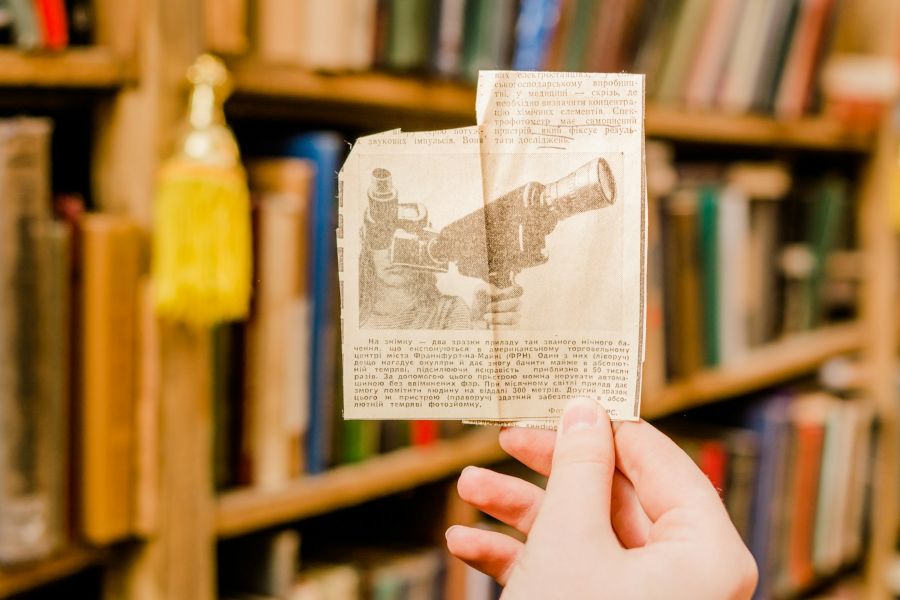 них електростанціях, у
ськогосподарському виробни-
тві, у медицині — скрізь, де
необхідно визначити концентра-
цію хімічних елементів. Спек-
трофотометр має самописний
пристрій, який фіксує резуль-
тати досліджень.
потуж
звукових імпульсів. Вони
На знімку — два зразки приладу так званого нічного ба-
чення, що експонуються в американському торговельному
центрі міста Франкфурт-на-Майні (ФРН). Один з них (ліворуч)
дещо нагадує окуляри й дає змогу бачити майже в абсолют-
ній темряві, підсилюючи яскравість приблизно в 50 тисяч
разів. За допомогою цього пристрою можна керувати автома-
шиною без ввімкнених фар. При місячному світлі прилад дає
змогу помітити людину на віддалі 300 метрів. Другий зразок
цього ж пристрою (праворуч) здатний забезпечити в абсо-
лютній темряві фотозйомку.